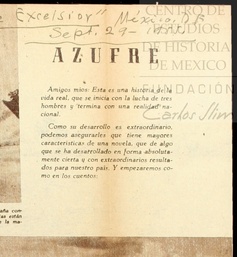 "Excelsior" México, D.F.
Sept. 27-
CENTRO DE
ESTUDIOS
DE HISTORIA
DE MEXICO
FUNDACIÓN
Carlos Slim
AZUFRE
Amigos mios: Esta es una historia de la
vida real, que se inicia con la lucha de tres
hombres y termina con una realidad na-
cional.
Como su desarrollo es extraordinario,
podemos asegurarles que tiene mayores
características de una novela, que de algo
que se ha desarrollado en forma absoluta-
mente cierta y con extraordinarios resulta-
dos para nuestro país. Y empezaremos co-
mo en los cuentos:
aña con
tas están
e la ma-